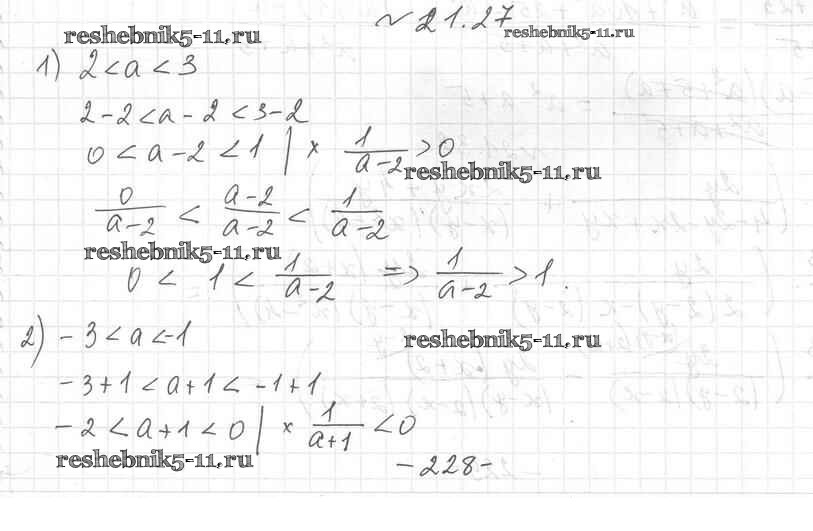 № 21.27
reshebnik5-11.ru
reshebnik5-11.ru
1) 2 < a < 3
2 - 2 < a - 2 < 3 - 2
0 < a - 2 < 1 | × 1/(a-2) > 0
reshebnik5-11.ru
0/(a-2) < (a-2)/(a-2) < 1/(a-2)
reshebnik5-11.ru
0 < 1 < 1/(a-2) => 1/(a-2) > 1.
2) -3 < a < -1
reshebnik5-11.ru
-3+1 < a+1 < -1+1
-2 < a+1 < 0 | × 1/(a+1) < 0
reshebnik5-11.ru
-228-